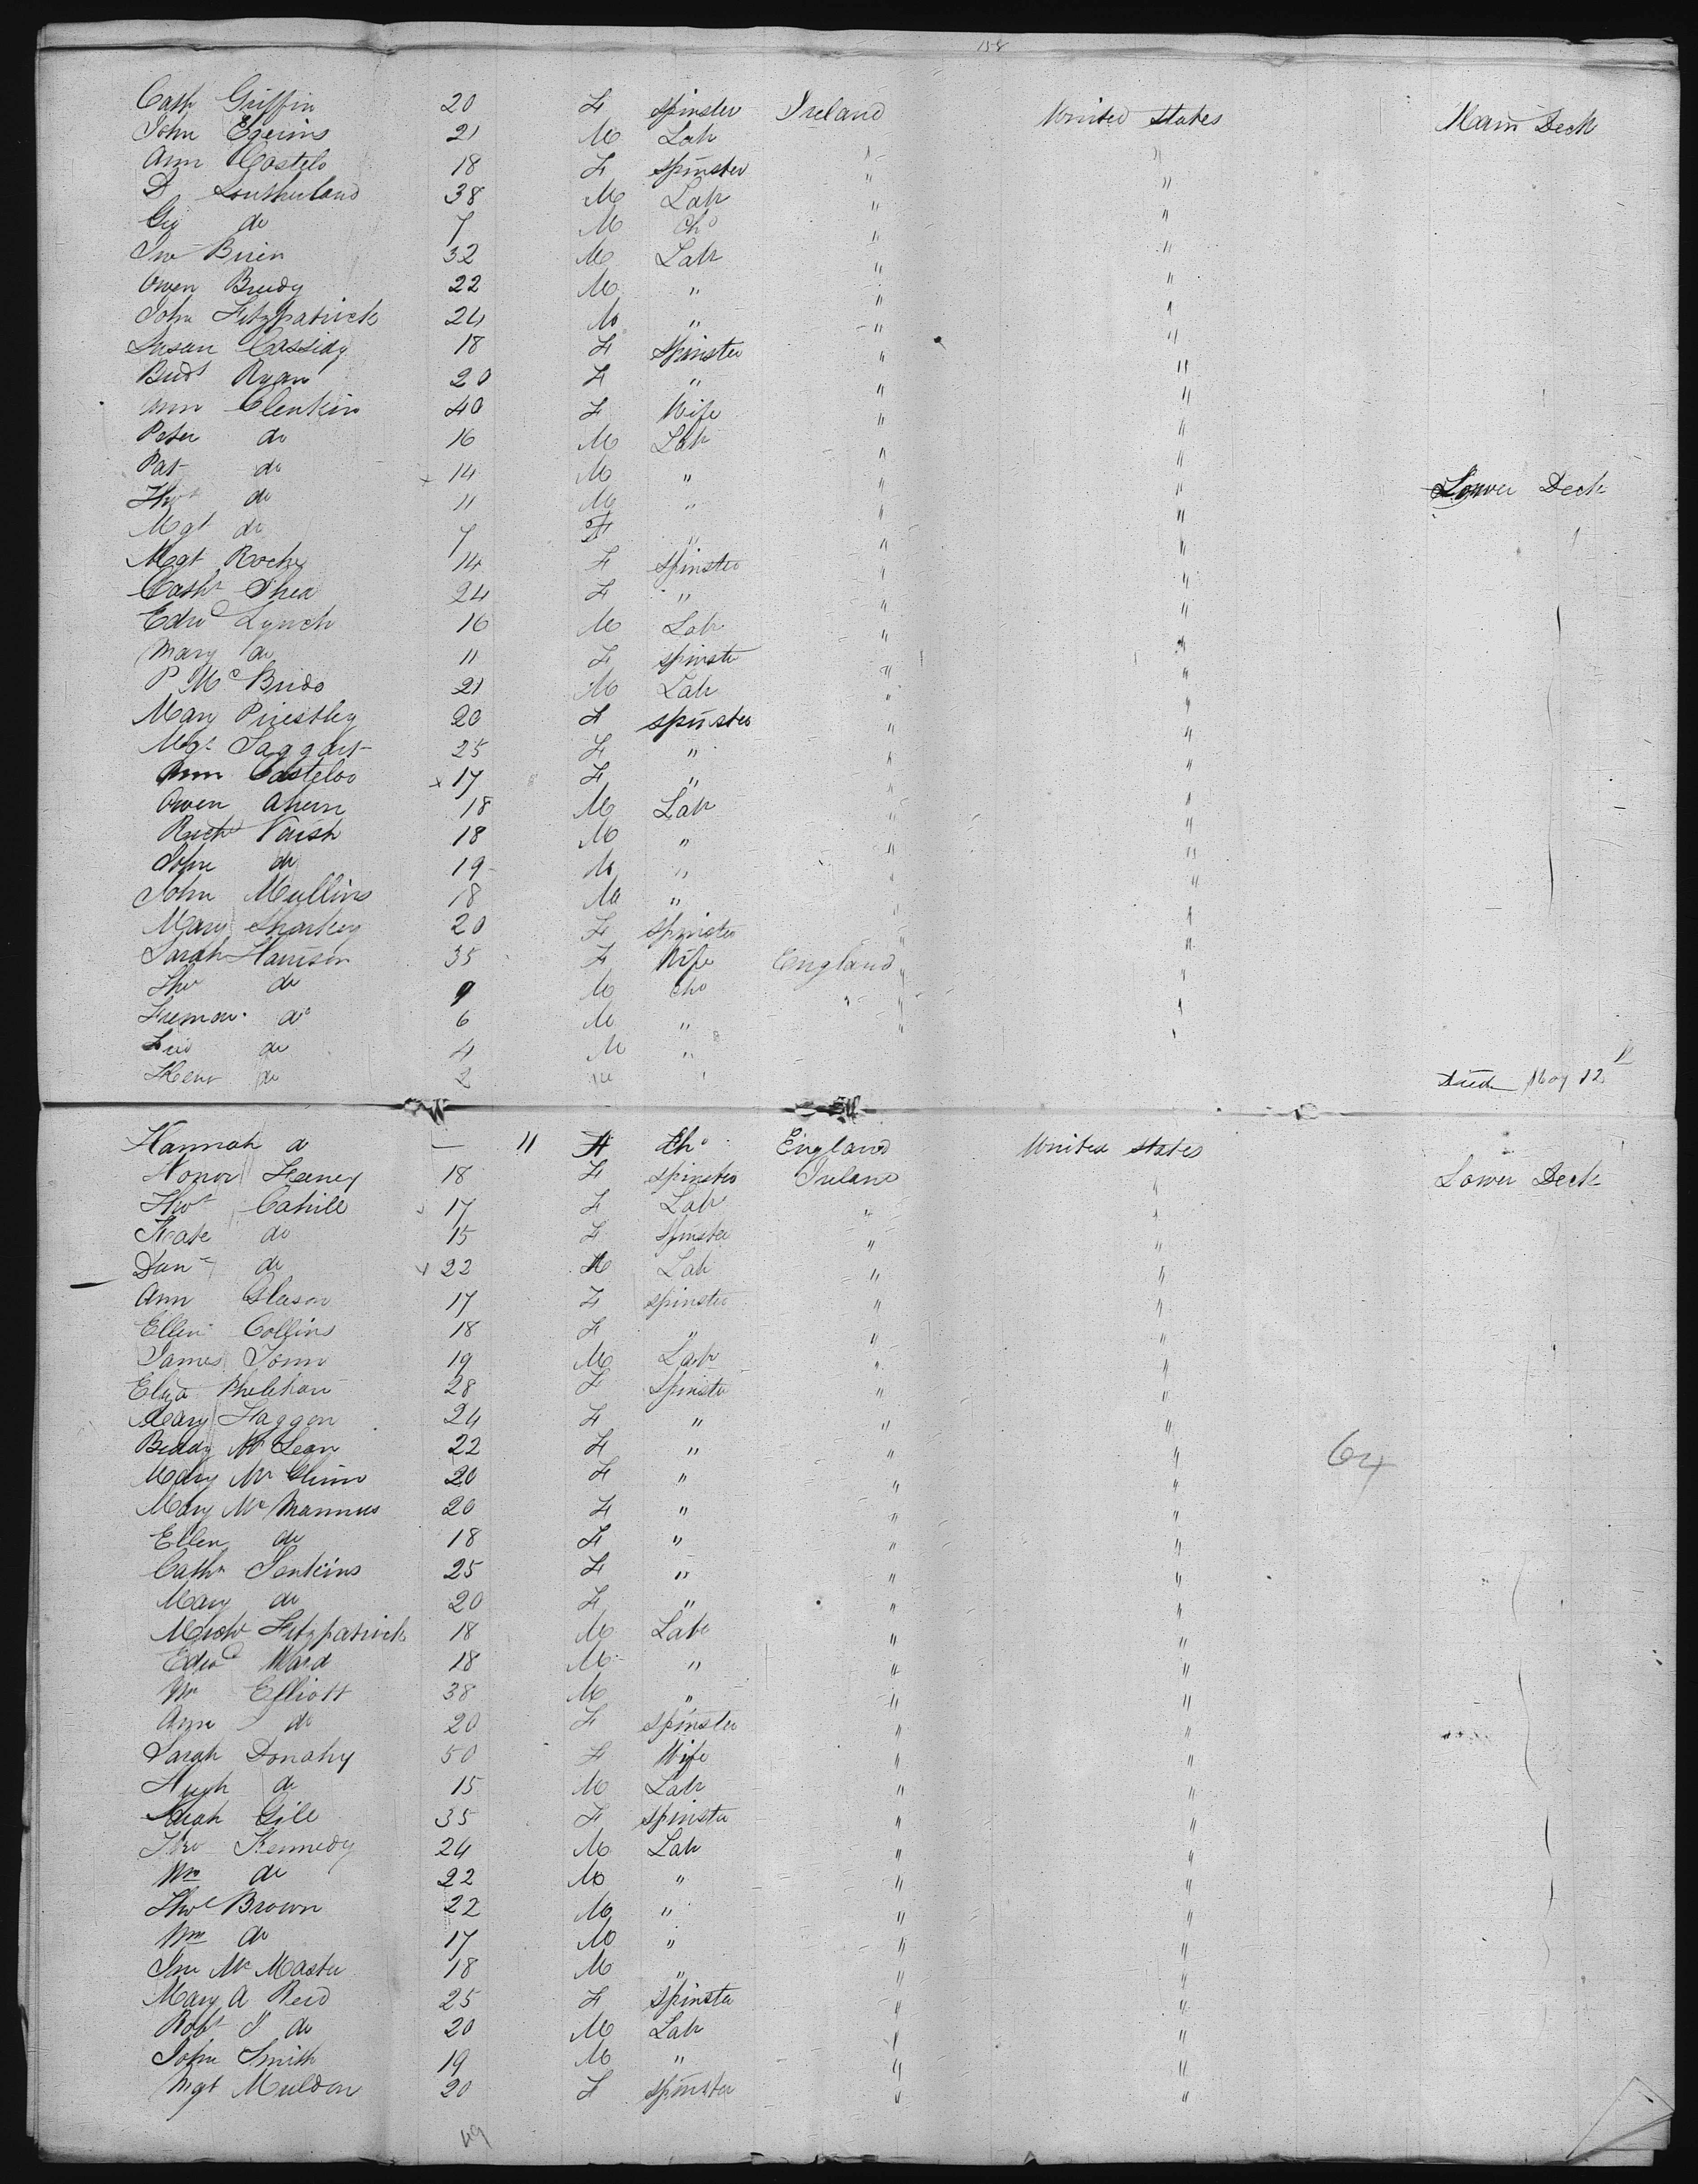 158
Cath Griffin 20 F Spinster Ireland United States Main Deck
John Egerins 21 M Labr " "
Ann Costelo 18 F Spinster " "
D Southerland 38 M Labr " "
Geo do 7 M Chd " "
Jno Brien 32 M Labr " "
Owen Brudy 22 M " " "
John Fitzpatrick 24 M " " "
Susan Cassidy 18 F Spinster " "
Bridt Ryan 20 F " " "
Ann Clenkin 40 F Wife " "
Peter do 16 M Labr " "
Pat do x 14 M " " " Lower Deck
Thos do 11 M " " "
Mgt do 7 F " " "
Mgt Roche 14 F Spinster " "
Cathe Shea 24 F " " "
Edwd Lynch 16 M Labr " "
Mary do 11 F Spinster " "
P McBride 21 M Labr " "
Mary Priestley 20 F Spinster " "
Mgt Taggart 25 F " " "
Ann Casteloo x 17 F " " "
Owen Ahern 18 M Labr " "
Richd Naish 18 M " " "
John do 19 M " " "
John Mullins 18 M " " "
Mary Sharkey 20 F Spinster " "
Sarah Harrison 35 F Wife England "
Thos do 9 M Chd " "
Freman do 6 M " " "
do 4 M "
Henr do 2 M " Died May 12th
Hannah do — 11 F Chd England United States
Honor Heaney 18 F Spinster Ireland " Lower Deck
Thos Cahill 17 F Labr " "
Kate do 15 F Spinster " "
Danl do x 22 M Labr " "
Ann Gleason 17 F Spinster " "
Ellen Collins 18 F " " "
James Tonn 19 M Labr " "
Eliza Phelehan 28 F Spinster " "
Mary Haggen 24 F " " "
Biddy McLean 22 F " " " 64
Mary McGlinn 20 F " " "
Mary McMannus 20 F " " "
Ellen do 18 F " " "
Cathn Jenkins 25 F " " "
Mary do 20 F " " "
Michl Fitzpatrick 18 M Labr " "
Edwd Ward 18 M " " "
Wm Elliott 38 M " " "
Ann do 20 F Spinster " "
Sarah Donahy 50 F Wife " "
Hugh do 15 M Labr " "
Gill 35 F Spinster " "
Jno Kennedy 24 M Labr " "
Wm do 22 M " " "
Thos Brown 22 M " " "
Wm do 17 M " " "
Jno McMaster 18 M " " "
Mary A Reid 25 F Spinster " "
Robt J do 20 M Labr " "
John Smith 19 M " " "
Mgt Muldon 20 F Spinster " "
49